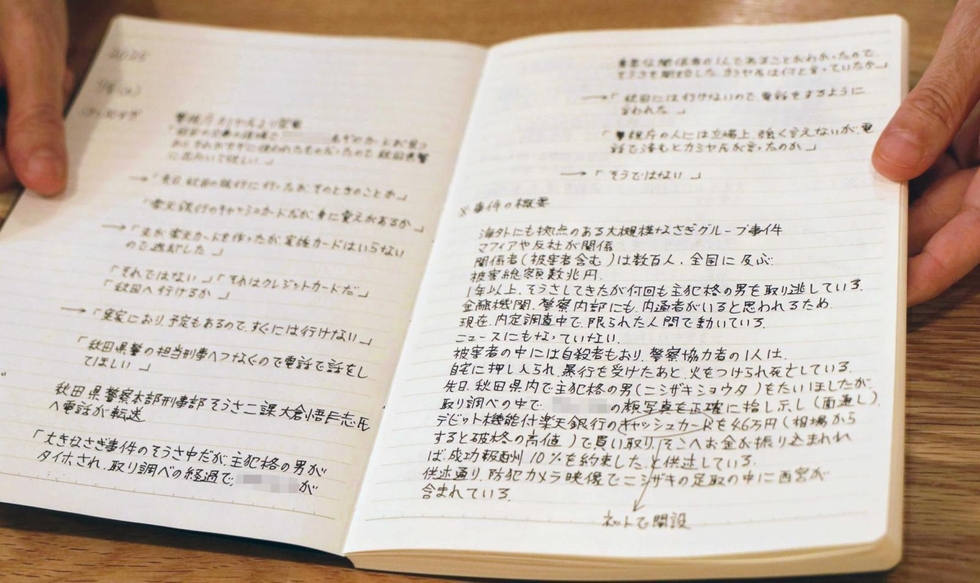 2025
警視庁カミヤ氏より電話
→「先日、秋田の銀行に行ったが、そのときのことか」
「楽天銀行のキャッシュカードだが、身に覚えがあるか」
→「主が楽天カードを作ったが、家族カードはいらないので、返却した」
「それではない」「それはクレジットカードだ」
「秋田へ行けるか」
→「実家におり、予定もあるので、すぐには行けない」
「秋田県警の担当刑事へつなぐので電話で話をし
てほしい」
秋田県警察本部刑事部そうさ二課 大倉悟 氏
へ電話が転送
「大きなさぎ事件のそうさ中だが、主犯格の男が
タイホされ、取り調べの経過で、 が
重要な関係者の1人であることがわかったので、
そうさを開始した。カミヤ氏は何と言っていたか」
→「秋田には行けないので、電話をするように
言われた」
「警視庁の人には立場上、強く言えないが、電
話で済むとカミヤ氏が言ったのか」
→「そうではない」
※事件の概要
海外にも拠点のある大規模なさぎグループ事件
マフィアや反社が関係
関係者(被害者含む)は数百人、全国に及ぶ
被害総額数兆円
1年以上、そうさしてきたが何回も主犯格の男を取り逃している。
金融機関、警察内部にも、内通者がいると思われるため、
現在、内定調査中で、限られた人間で動いている。
ニュースにもなっていない。
被害者の中には自殺者もおり、警察協力者の1人は、
自宅に押し入られ、暴行を受けたあと、火をつけられ死亡している。
先日、秋田県内で主犯格の男(ニシザキショウタ)をたいほしたが、
取り調べの中で、 の顔写真を正確に指し示し(面通し)、
デビット機能付楽天銀行のキャッシュカードを46万円(相場から
すると破格の高値)で買い取り、そこへお金が振り込まれれ
ば、成功報酬10%を約束した、と供述している。
供述通り、防犯カメラ映像でニシザキの足取の中に西宮が
含まれている。
ネットで開設